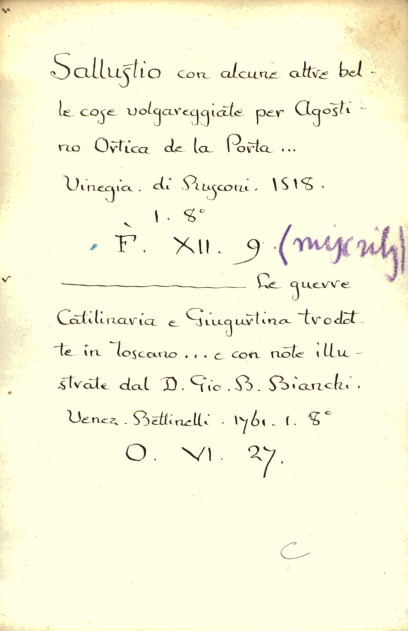 Sallustio con alcune altre bel-
le cose volgareggiate per Agosti-
no Ortica de la Porta ...
Vinegia. di Rusconi. 1518.
1. 8°
F. XII. 9
Le guerre
Catilinaria e Giugurtina trodot-
te in Toscano ... e con note illu-
strate dal D. Gio. B. Bianchi.
Venez. Bettinelli. 1761. 1. 8°
O. VI. 27.
C